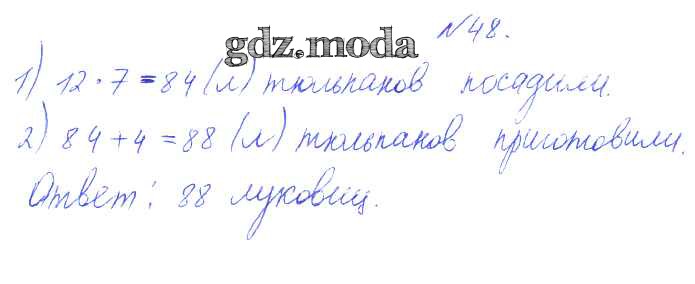 №48.
gdz.moda
1) 12·7=84 (л) тюльпанов посадили.
2) 84+4=88 (л) тюльпанов приготовили.
Ответ: 88 луковиц.